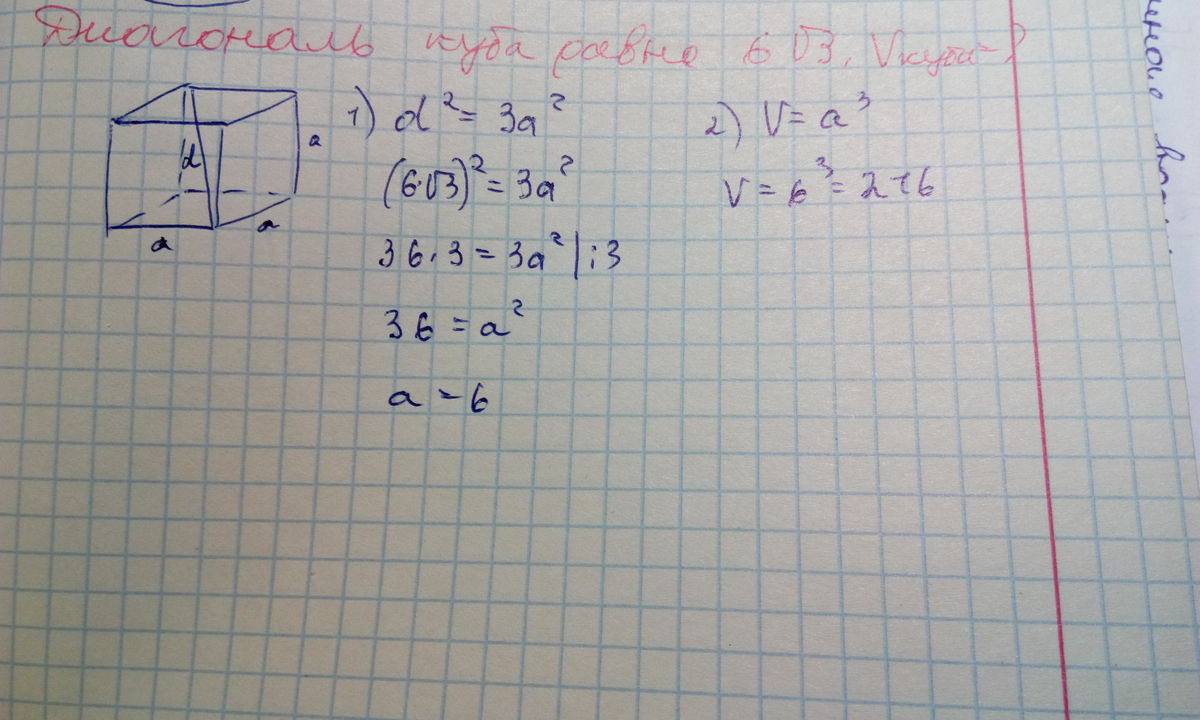 Диагональ куба равна 6√3. Vкуба=?
1) d²= 3a²
(6·√3)²= 3a²
36·3=3a² |:3
36=a²
a=6
2) V= a³
V=6³=216
d
a
a
a